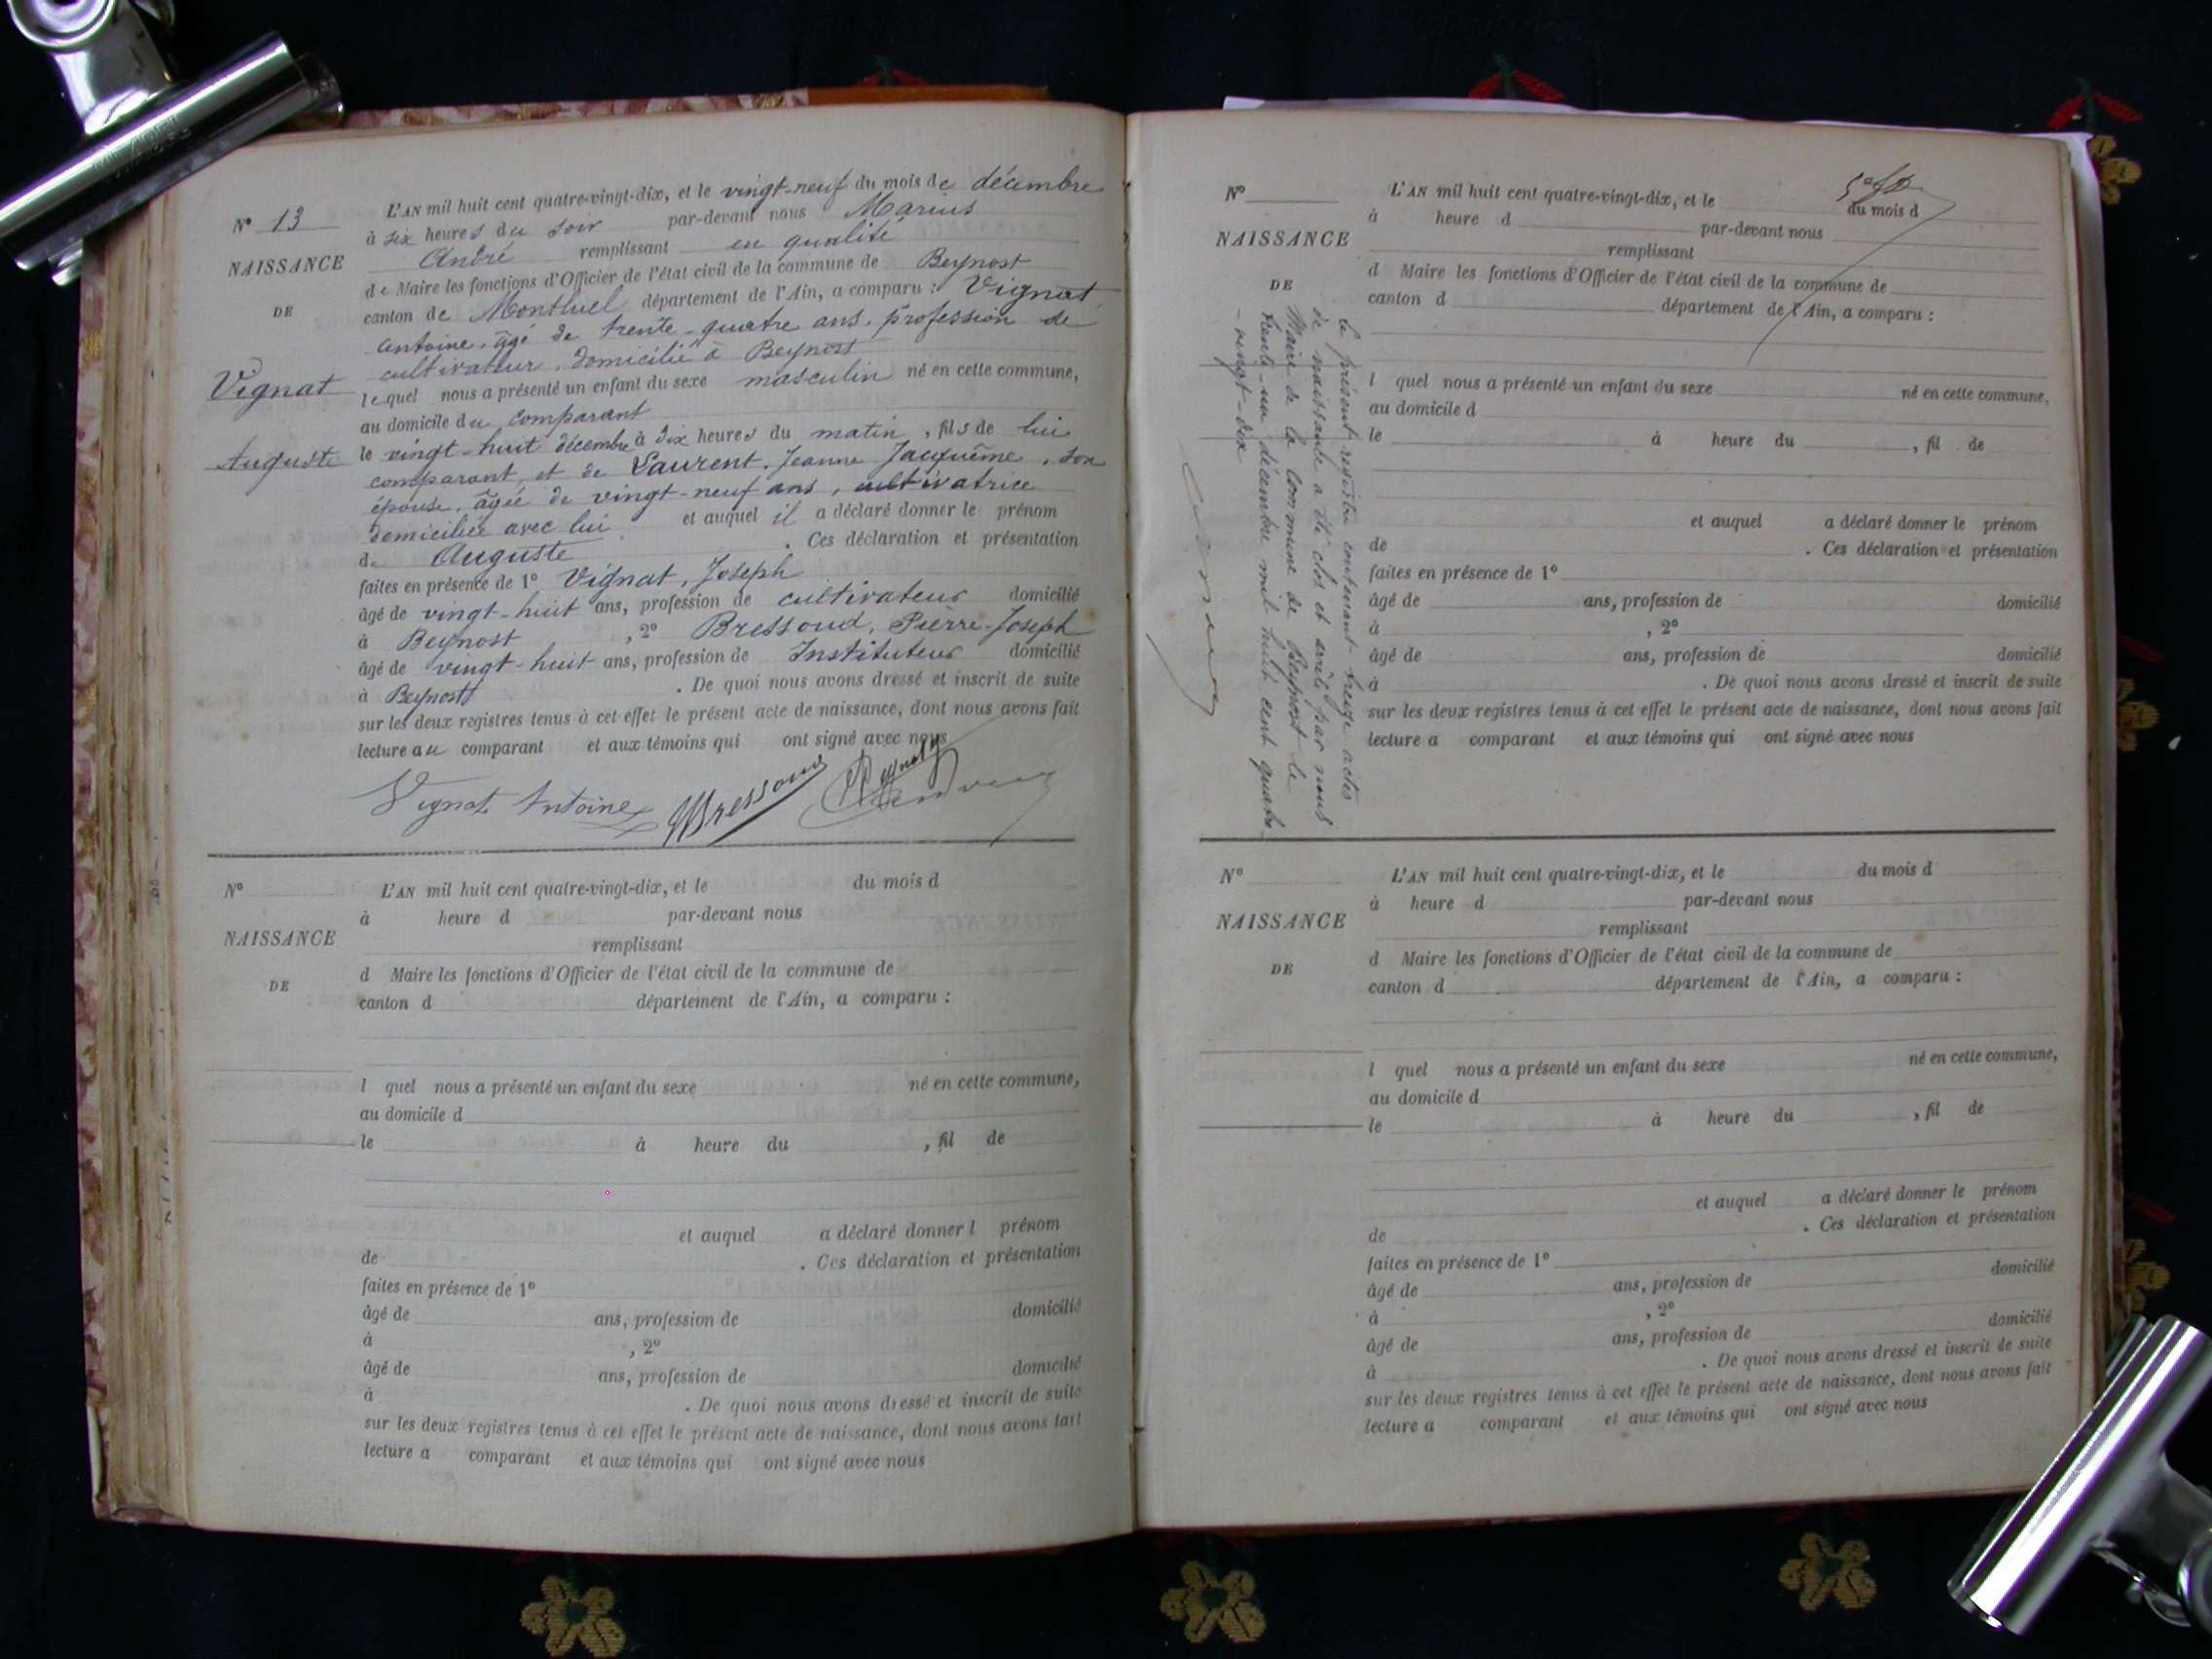 N° 13
NAISSANCE
DE
Vignat
Auguste
L'AN mil huit cent quatre-vingt-dix, et le vingt-neuf du mois de décembre
à six heures du soir par-devant nous Marius
André remplissant en qualité
de Maire les fonctions d'Officier de l'état civil de la commune de Beynost
canton de Montluel département de l'Ain, a comparu : Vignat
Antoine, âgé de trente-quatre ans, profession de
cultivateur, domicilié à Beynost
lequel nous a présenté un enfant du sexe masculin né en cette commune,
au domicile du comparant
le vingt-huit décembre à dix heures du matin, fils de lui
comparant, et de Laurent, Jeanne Jacquême, son
épouse, âgée de vingt-neuf ans, cultivatrice
domiciliée avec lui et auquel il a déclaré donner le prénom
de Auguste . Ces déclaration et présentation
faites en présence de 1° Vignat, Joseph
âgé de vingt-huit ans, profession de cultivateur domicilié
à Beynost , 2° Bressoud, Pierre-Joseph
âgé de vingt-huit ans, profession de Instituteur domicilié
à Beynost . De quoi nous avons dressé et inscrit de suite
sur les deux registres tenus à cet effet le présent acte de naissance, dont nous avons fait
lecture au comparant et aux témoins qui ont signé avec nous
Vignat Antoine Bressoud
N°
NAISSANCE
DE
L'AN mil huit cent quatre-vingt-dix, et le du mois d
à heure d par-devant nous
remplissant
d Maire les fonctions d'Officier de l'état civil de la commune de
canton d département de l'Ain, a comparu :
l quel nous a présenté un enfant du sexe né en cette commune,
au domicile d
le à heure du , fil de
et auquel a déclaré donner l prénom
de . Ces déclaration et présentation
faites en présence de 1°
âgé de ans, profession de domicilié
à , 2°
âgé de ans, profession de domicilié
à . De quoi nous avons dressé et inscrit de suite
sur les deux registres tenus à cet effet le présent acte de naissance, dont nous avons fait
lecture a comparant et aux témoins qui ont signé avec nous
N°
NAISSANCE
DE
L'AN mil huit cent quatre-vingt-dix, et le du mois d
à heure d par-devant nous
remplissant
d Maire les fonctions d'Officier de l'état civil de la commune de
canton d département de l'Ain, a comparu :
l quel nous a présenté un enfant du sexe né en cette commune,
au domicile d
le à heure du , fil de
et auquel a déclaré donner le prénom
de . Ces déclaration et présentation
faites en présence de 1°
âgé de ans, profession de domicilié
à , 2°
âgé de ans, profession de domicilié
à . De quoi nous avons dressé et inscrit de suite
sur les deux registres tenus à cet effet le présent acte de naissance, dont nous avons fait
lecture a comparant et aux témoins qui ont signé avec nous
le présent registre contenant treize actes
de naissance a été clos et arrêté par nous
Maire de la Commune de Beynost le
trente-un décembre mil huit cent quatre-
-vingt-dix
N°
NAISSANCE
DE
L'AN mil huit cent quatre-vingt-dix, et le du mois d
à heure d par-devant nous
remplissant
d Maire les fonctions d'Officier de l'état civil de la commune de
canton d département de l'Ain, a comparu :
l quel nous a présenté un enfant du sexe né en cette commune,
au domicile d
le à heure du , fil de
et auquel a déclaré donner le prénom
de . Ces déclaration et présentation
faites en présence de 1°
âgé de ans, profession de domicilié
à , 2°
âgé de ans, profession de domicilié
à . De quoi nous avons dressé et inscrit de suite
sur les deux registres tenus à cet effet le présent acte de naissance, dont nous avons fait
lecture a comparant et aux témoins qui ont signé avec nous